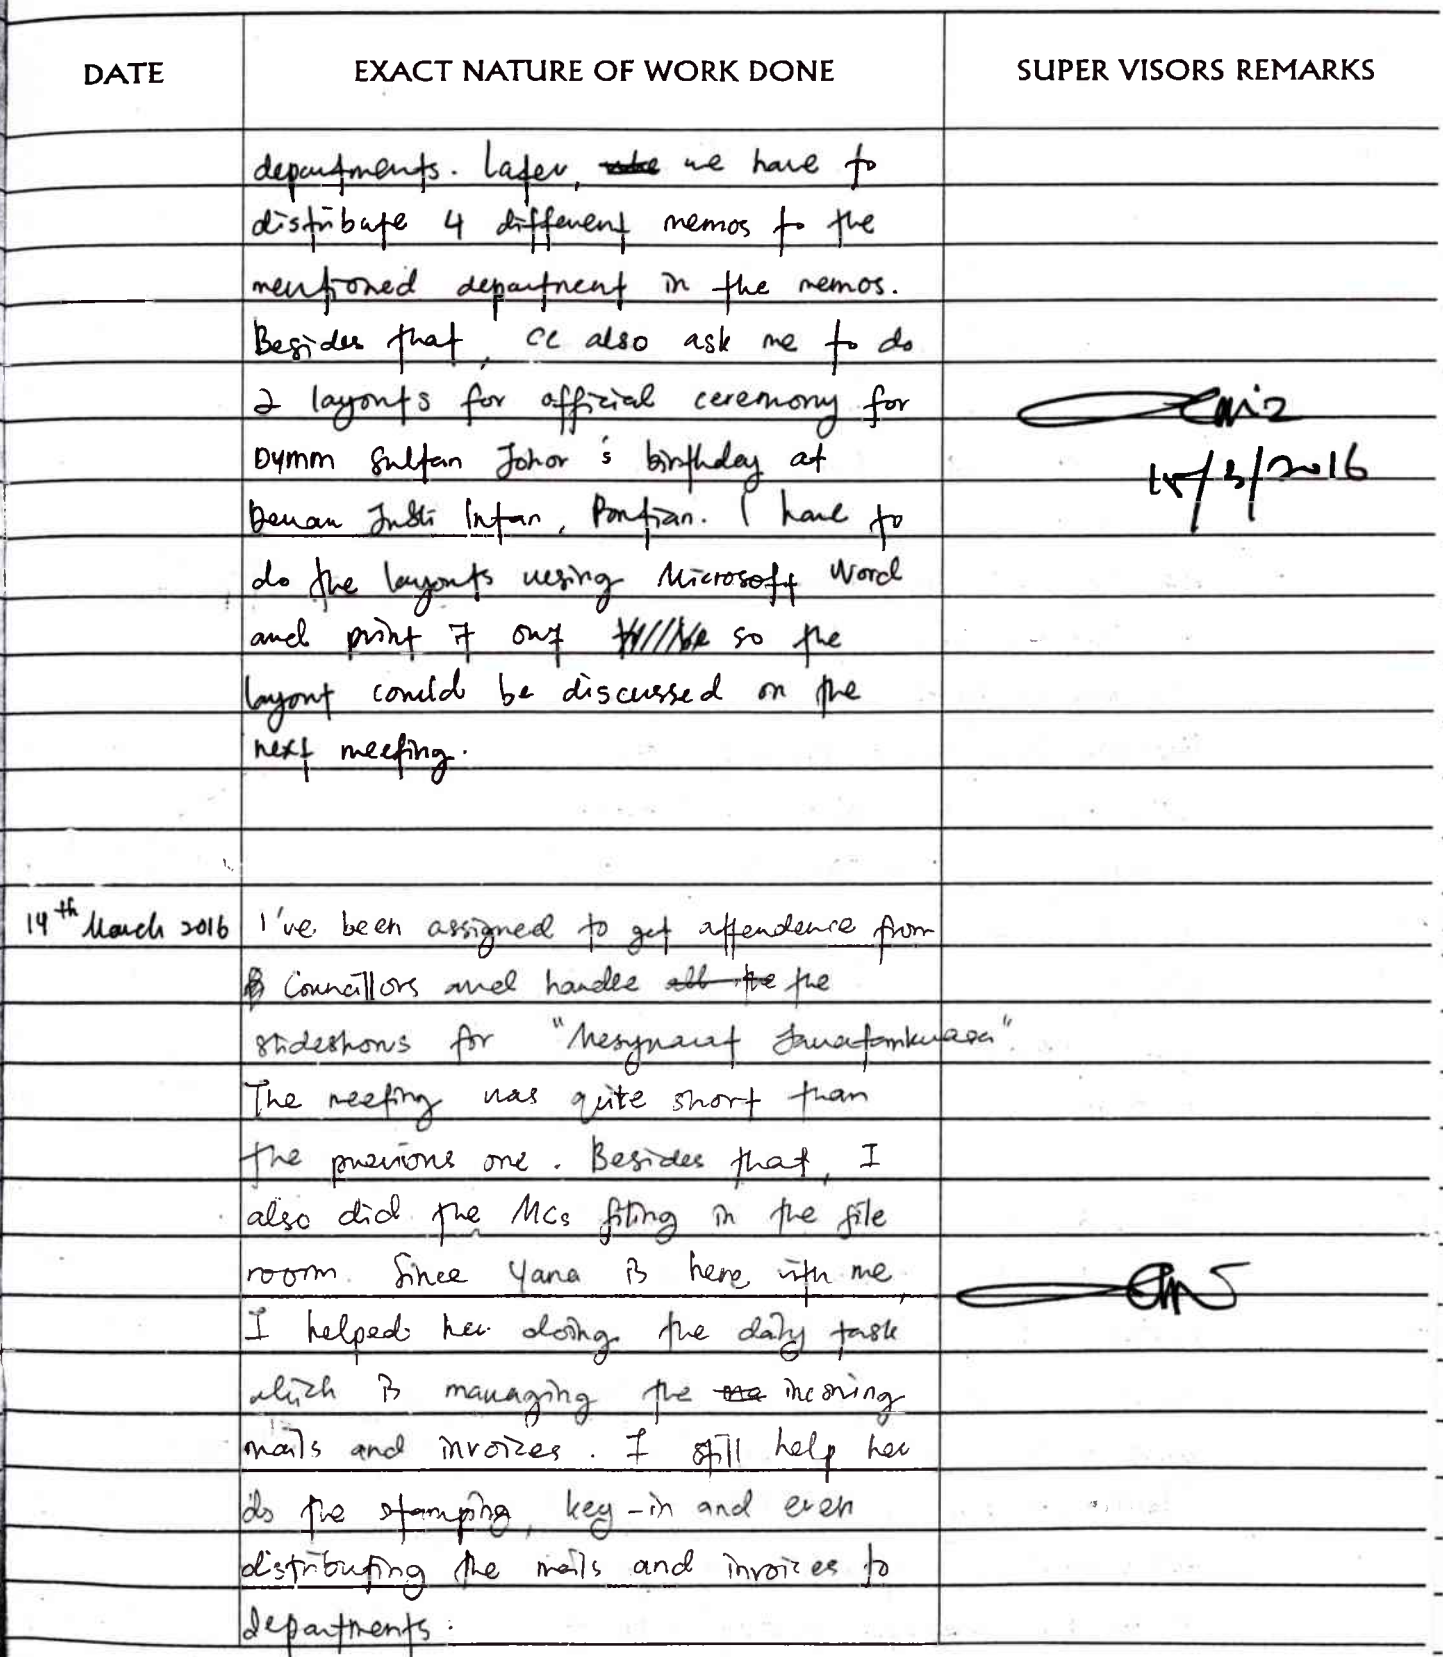 DATE EXACT NATURE OF WORK DONE SUPER VISORS REMARKS
departments. Later, we have to
distribute 4 different memos to the
mentioned department in the memos.
Besides that, CC also ask me to do
2 layouts for official ceremony for
DYMM Sultan Johor's birthday at
Dewan Jubli Intan, Pontian. I have to
15/3/2016
do the layouts using Microsoft Word
and print it out so the
layout could be discussed on the
next meeting.
14th March 2016 I've been assigned to get attendence from
Councillors and handle all the the
slideshows for "Mesyuarat Jawatankuasa".
The meeting was quite short than
the previous one. Besides that, I
also did the MCs filing in the file
room. Since Yana is here with me,
I helped her doing the daily task
which is managing the incoming
mails and invoices. I still help her
do the stamping, key-in and even
distributing the mails and invoices to
departments.